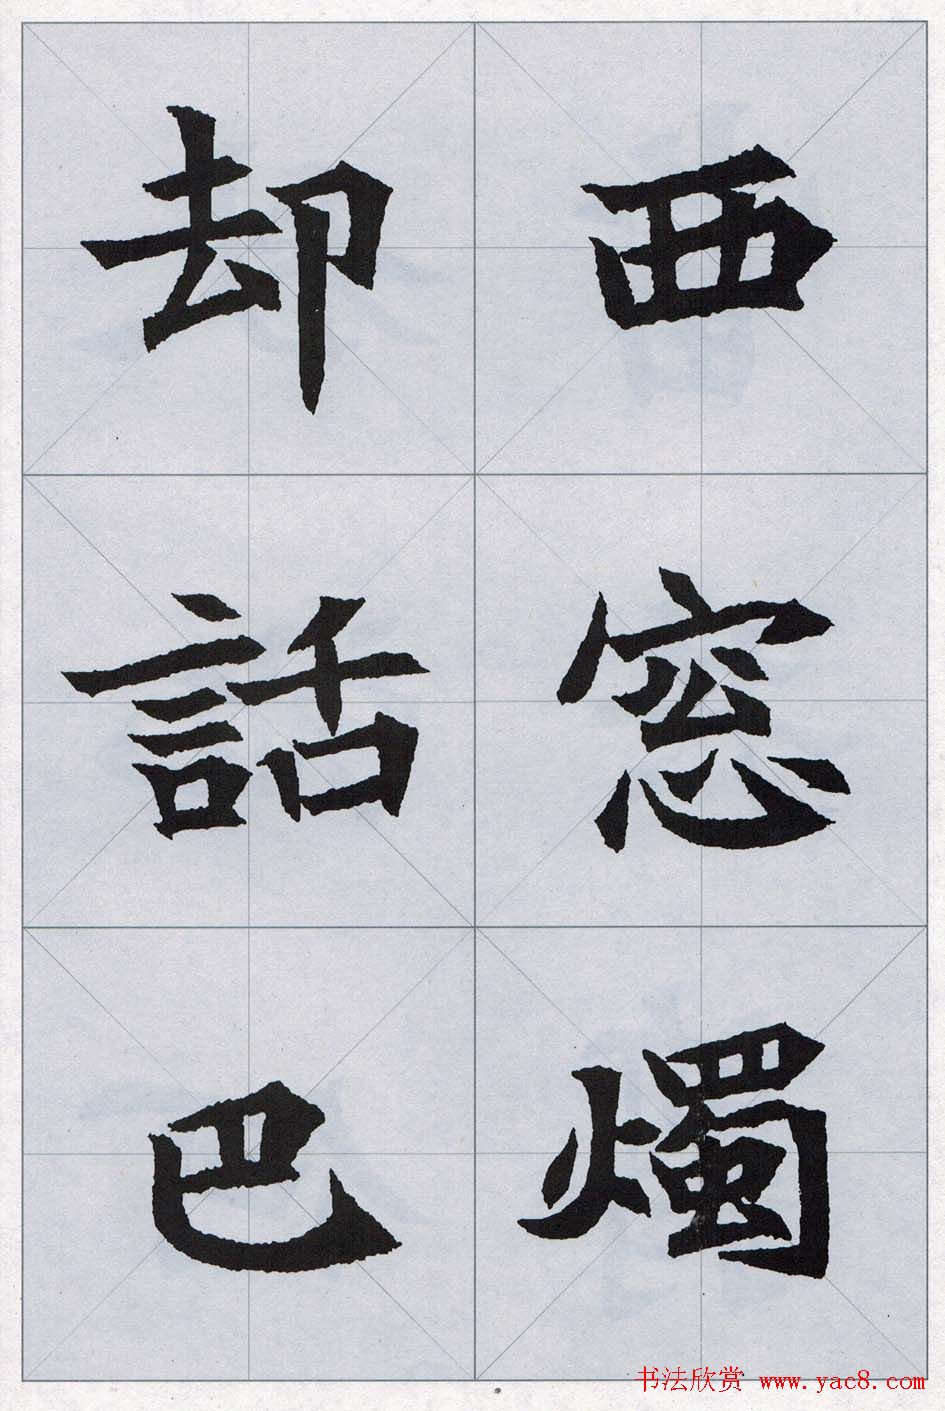 西窓燭
却話巴
书法欣赏 www.yac8.com